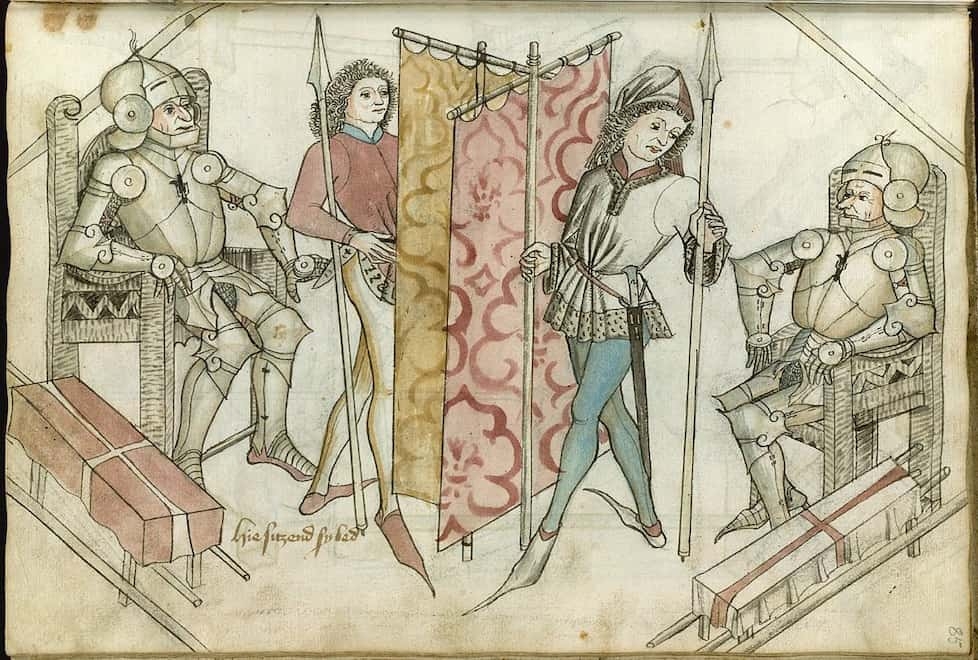 hie sitzend sy bed
85